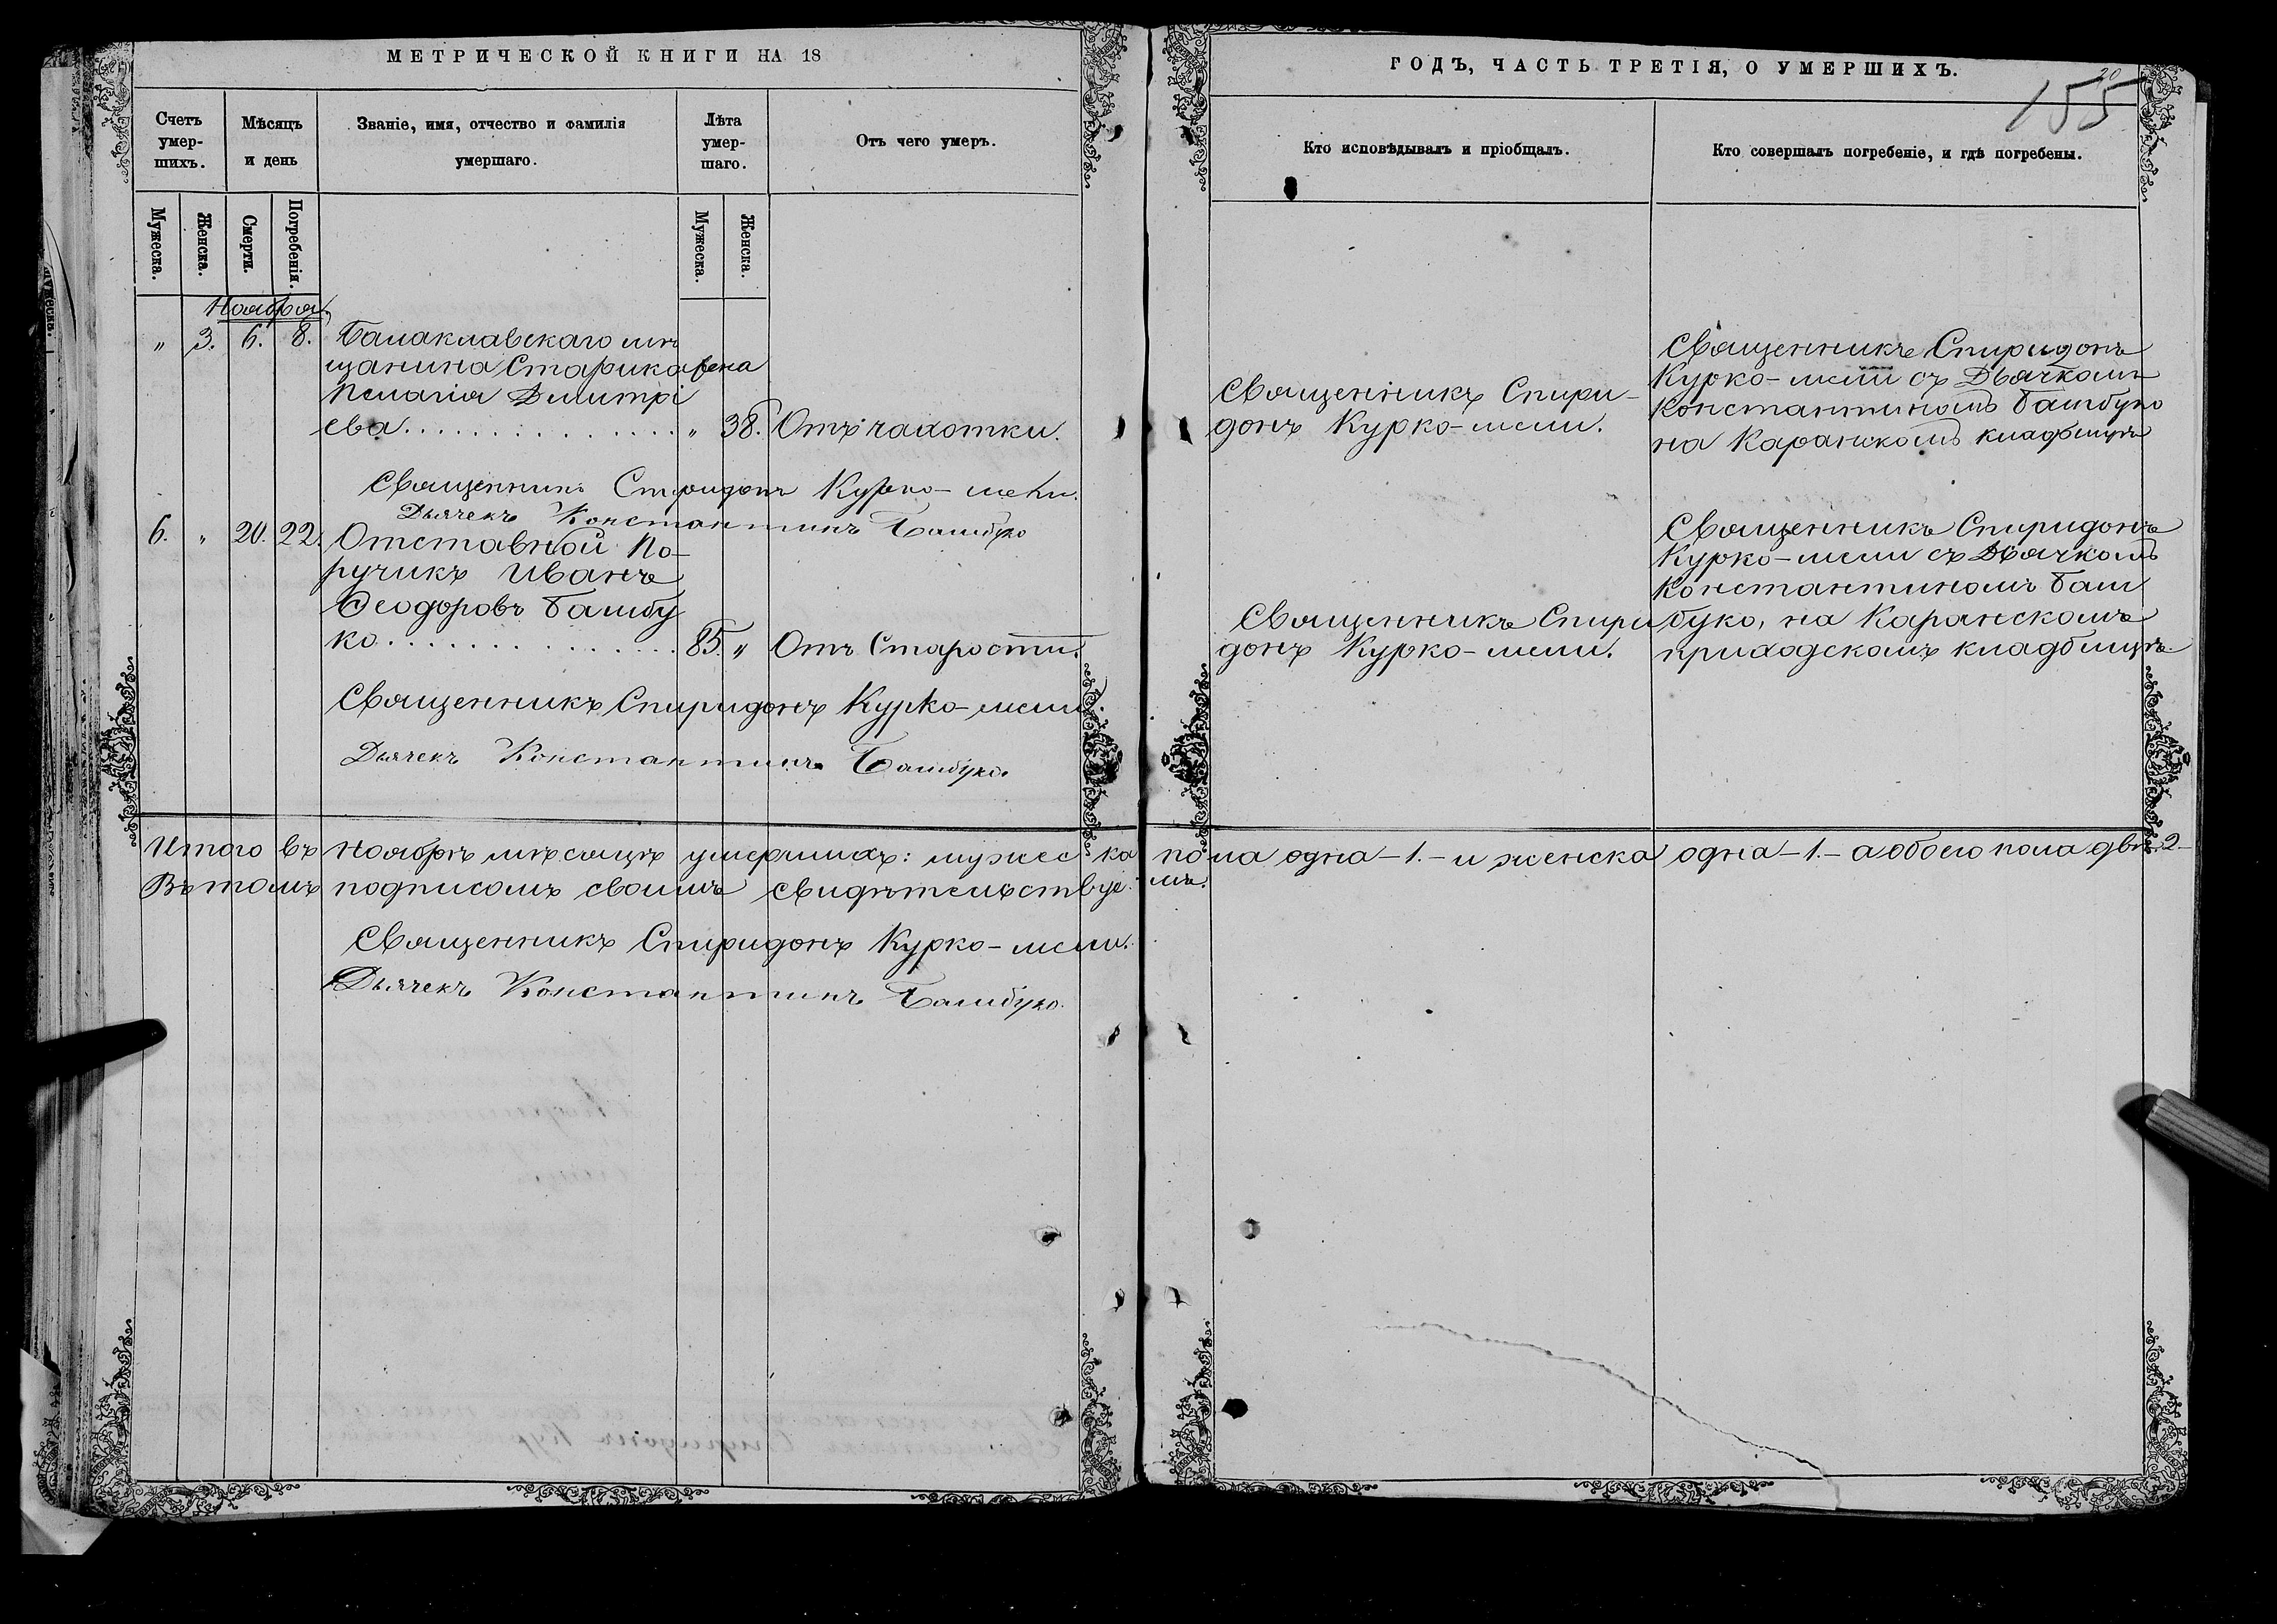 МЕТРИЧЕСКОЙ КНИГИ НА 18
ГОДЪ, ЧАСТЬ ТРЕТІЯ, О УМЕРШИХЪ.
20
155
Счетъ умер-шихъ.
Мѣсяцъ и день
Званіе, имя, отчество и фамилія умершаго.
Лѣта умер-шаго.
Отъ чего умеръ.
Кто исповѣдывалъ и пріобщалъ.
Кто совершалъ погребеніе, и гдѣ погребены.
Мужеска.
Женска.
Смерти.
Погребенія.
Мужеска.
Женска.
Ноября.
" 3. 6. 8. Балаклавскаго мѣ
щанина Старика жена
Пелагія Димитрі
ева . . . . . . . . . . . . . . . " 38. Отъ чахотки.
Священникъ Спири-
донъ Курко-мели.
Священникъ Спиридонъ
Курко-мели съ Дьячкомъ
Константиномъ Бамбуко
на Каранскомъ кладбищѣ
Священникъ Спиридонъ Курко-мели.
Дьячекъ Константинъ Бамбуко
6. " 20. 22. Отставной По-
ручикъ Иванъ
Ѳеодоровъ Бамбу
ко . . . . . . . . . . . . . . . 85. " Отъ Старости.
Священникъ Спири
донъ Курко-мели.
Священникъ Спиридонъ
Курко-мели съ Дьячкомъ
Константиномъ Бам
буко, на Каранскомъ
приходскомъ кладбищѣ.
Священникъ Спиридонъ Курко-мели.
Дьячекъ Константинъ Бамбуко.
Итого въ Ноябрѣ мѣсяцѣ умершихъ: мужеска пола одна-1.-и женска одна-1.-а обоего пола двѣ.2-
Въ томъ подписомъ своимъ свидѣтельствуемъ.
Священникъ Спиридонъ Курко-мели.
Дьячекъ Константинъ Бамбуко.